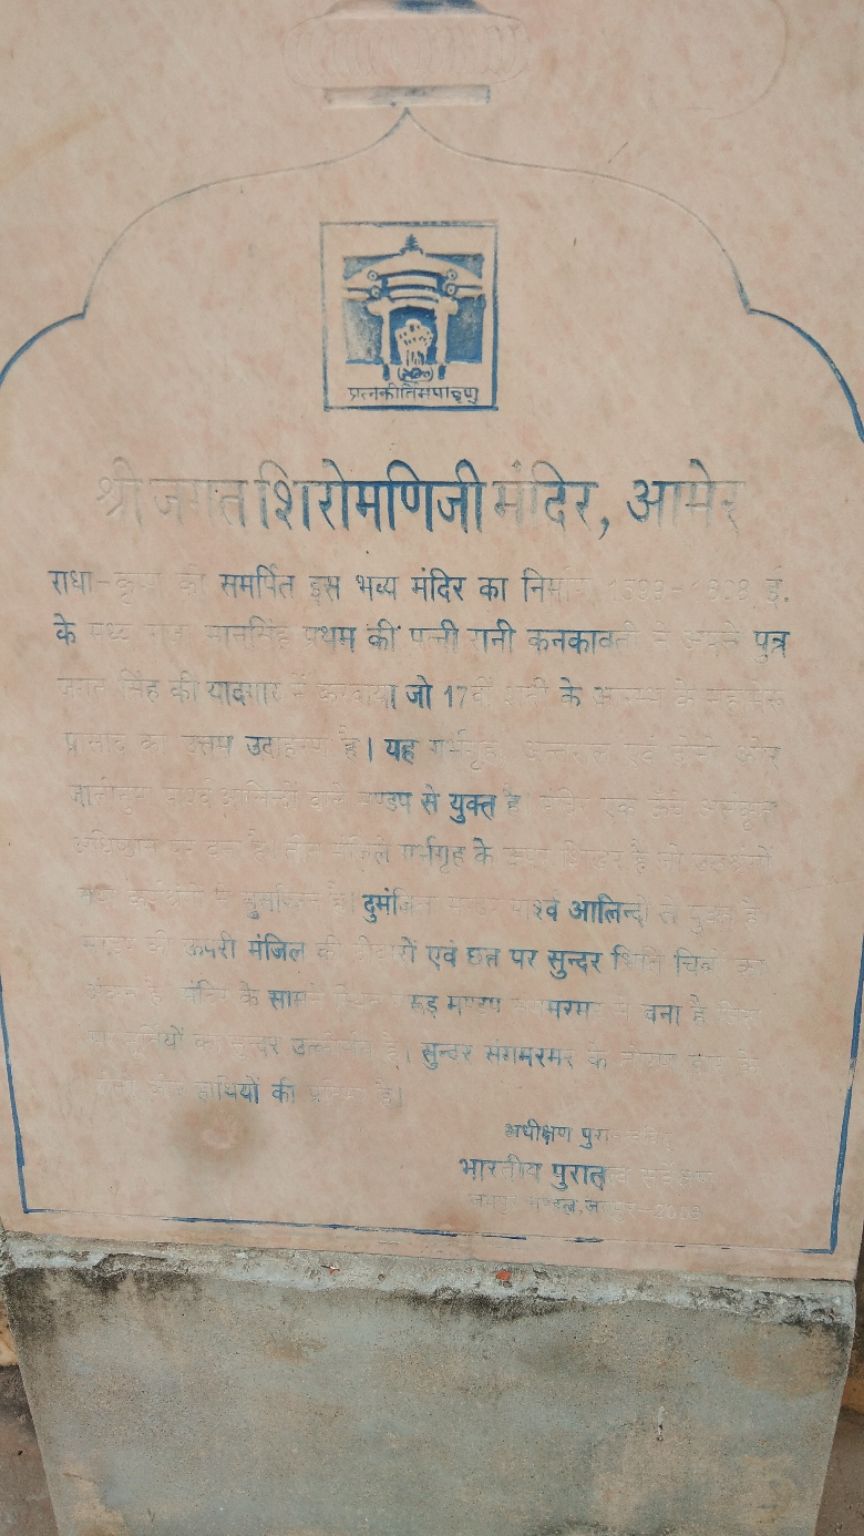 प्रत्नकीर्तिमपावृणु
श्री जगत शिरोमणिजी मंदिर, आमेर
राधा-कृष्ण को समर्पित इस भव्य मंदिर का निर्माण ई.
के मध्य राजा मानसिंह प्रथम की पत्नी रानी कनकावती ने अपने पुत्र
जगत सिंह की यादगार में करवाया जो 17वीं शती के आरम्भ के महामेरू
प्रासाद का उत्तम उदाहरण है। यह गर्भगृह, अन्तराल एवं दोनों ओर
वाले मण्डप से युक्त है। मंदिर एक ऊँचे अलंकृत
अधिष्ठान पर बना है। तीन मंजिले गर्भगृह के ऊपर शिखर है जो उरुश्रृंगों
तथा से सुसज्जित है। दुमंजिला मण्डप पार्श्व आलिन्दों से युक्त है।
मण्डप की ऊपरी मंजिल की दीवारों एवं छत पर सुन्दर भित्ति चित्रों का
अंकन है। मंदिर के सामने स्थित गरूड़ मण्डप संगमरमर से बना है जिस
पर मूर्तियों का सुन्दर उत्कीर्णन है। सुन्दर संगमरमर के तोरण द्वार के
दोनों ओर हाथियों की प्रतिमा है।
अधीक्षण पुरातत्वविद्
भारतीय पुरातत्व सर्वेक्षण
जयपुर मण्डल, जयपुर-2008